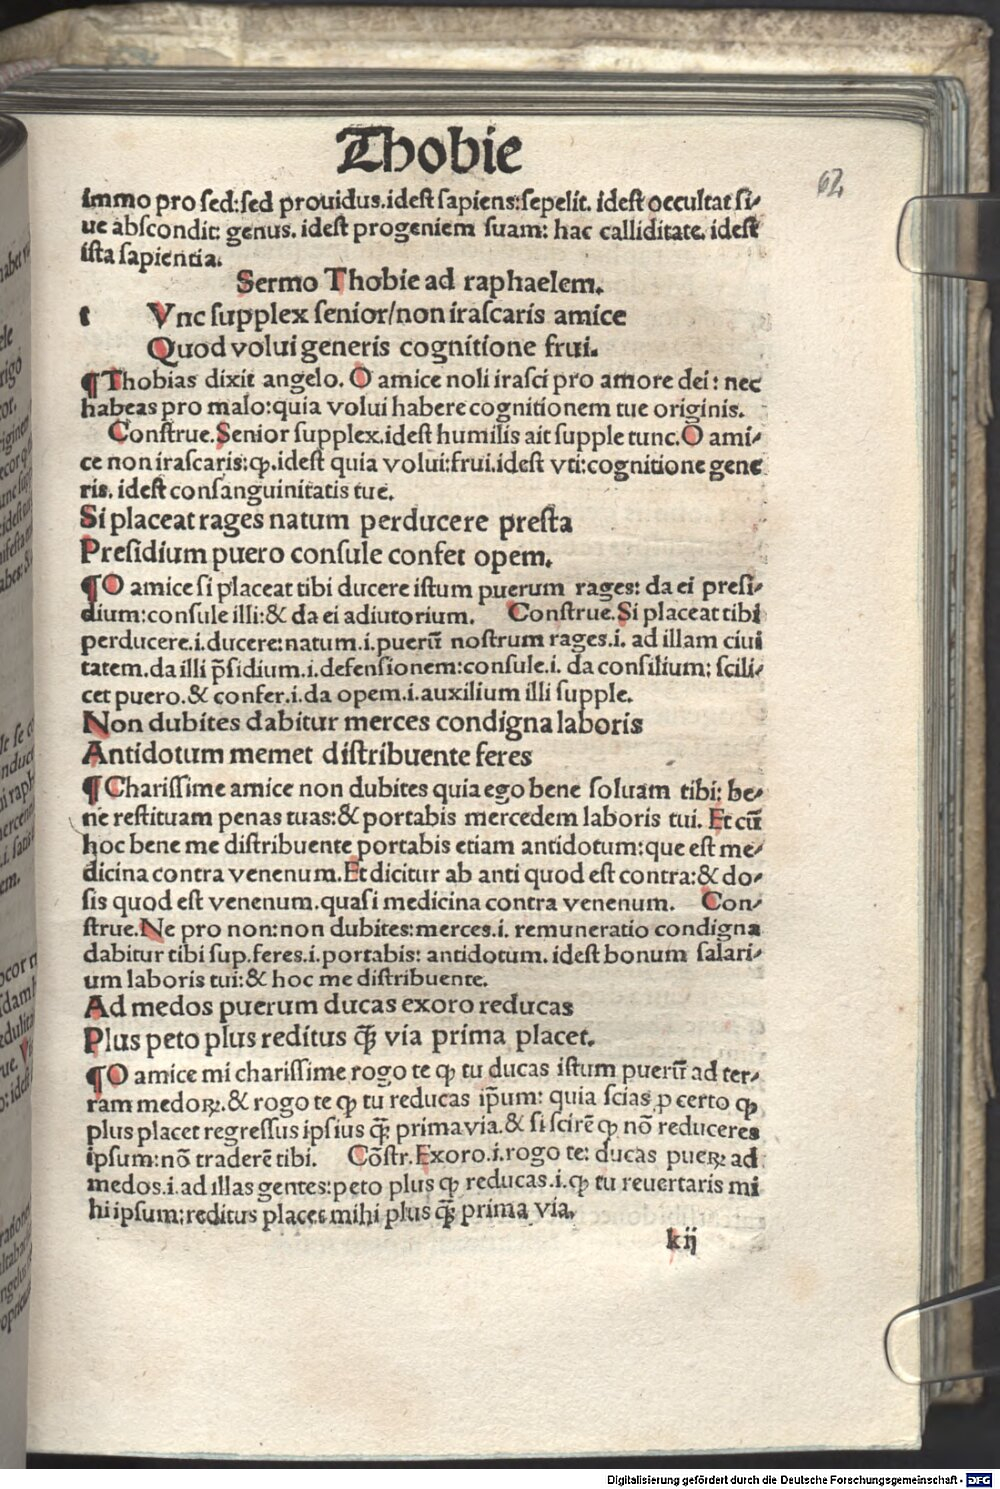 Thobie
62
immo pro sed:sed prouidus.idest sapiens:sepelit. idest occultat si⸗
ue abscondit: genus. idest progeniem suam: hac calliditate. idest
ista sapientia.
Sermo Thobie ad raphaelem.
t Vnc supplex senior/non irascaris amice
Quod volui generis cognitione frui.
¶Thobias dixit angelo. O amice noli irasci pro amore dei: nec
habeas pro malo:quia volui habere cognitionem tue originis.
Construe.Senior supplex.idest humilis ait supple tunc.O ami⸗
ce non irascaris:ꝙ.idest quia volui:frui.idest vti:cognitione gene
ris. idest consanguinitatis tue.
Si placeat rages natum perducere presta
Presidium puero consule confet opem.
¶O amice si placeat tibi ducere istum puerum rages: da ei presi⸗
dium:consule illi:& da ei adiutorium. Construe.Si placeat tibi
perducere.i.ducere:natum.i.puerū nostrum rages.i. ad illam ciui
tatem.da illi p̄sidium.i.defensionem:consule.i. da consilium: scili⸗
cet puero.& confer.i.da opem.i.auxilium illi supple.
Non dubites dabitur merces condigna laboris
Antidotum memet distribuente feres
¶Charissime amice non dubites quia ego bene soluam tibi: be⸗
ne restituam penas tuas:& portabis mercedem laboris tui. Et cū
hoc bene me distribuente portabis etiam antidotum:que est me⸗
dicina contra venenum.Et dicitur ab anti quod est contra:& do⸗
sis quod est venenum.quasi medicina contra venenum. Con⸗
strue.Ne pro non:non dubites:merces.i. remuneratio condigna
dabitur tibi sup.feres.i.portabis: antidotum. idest bonum salari⸗
um laboris tui:& hoc me distribuente.
Ad medos puerum ducas exoro reducas
Plus peto plus reditus ꝙ̄ via prima placet.
¶O amice mi charissime rogo te ꝙ tu ducas istum puerū ad ter⸗
ram medoꝝ.& rogo te ꝙ tu reducas ip̄um: quia scias p certo ꝙ
plus placet regressus ipsius ꝙ̄ prima via.& si scirē ꝙ nō reduceres
ipsum:nō traderē tibi. Cōstr.Exoro.i.rogo te: ducas pueꝝ ad
medos.i.ad illas gentes:peto plus ꝙ reducas.i.ꝙ tu reuertaris mi
hi ipsum:reditus placet mihi plus ꝙ̄ prima via.
kij
Digitalisierung gefördert durch die Deutsche Forschungsgemeinschaft - DFG